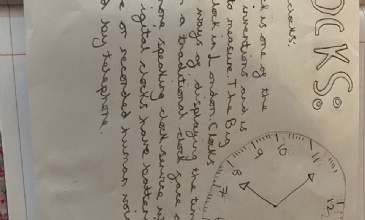 OCKS:
clocks:
ck is one of the
inventions and is
to measure. The Big
clock in London. Clocks
ways of displaying the tim
a traditional clock face o
more speaking clock service w
igital clocks have batter
e or recorded human voi
d by telephone.
12
11
10
9
8
7